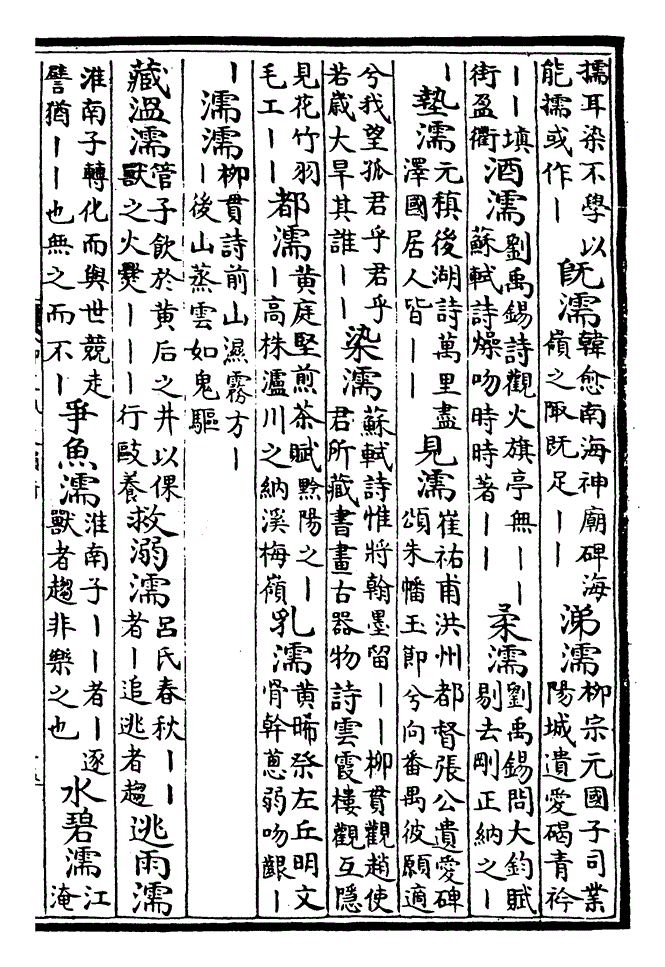 擩耳染不學以能擩或作丨旣濡韓愈南海神廟碑海嶺之陬旣足丨丨涕濡柳宗元國子司業陽城遺愛碣青衿
丨丨填街盈衢酒濡劉禹錫詩觀火旗亭無丨丨蘇軾詩燥吻時時著丨丨柔濡劉禹錫問大鈞賦剔去剛正納之丨
丨墊濡元稹後湖詩萬里盡澤國居人皆丨丨見濡崔祐甫洪州都督張公遺愛碑頌朱幡玉節兮向番禺彼願適
兮我望孤君乎君乎若歲大旱其誰丨丨染濡蘇軾詩惟將翰墨留丨丨柳貫觀趙使君所藏書畫古器物詩雲霞樓觀互隱
見花竹羽毛工丨丨都濡黄庭堅煎茶賦黔陽之丨丨高株瀘川之納溪梅嶺乳濡黄晞祭左丘明文骨幹蒽弱吻齦丨
丨濡濡柳貫詩前山濕霧方丨丨後山蒸雲如鬼驅
藏溫濡管子飲於黄后之井以倮獸之火爨丨丨丨行敺養救溺濡呂氏春秋丨丨者丨追逃者趨逃雨濡
淮南子轉化而與世競走譬猶丨丨也無之而不丨爭魚濡淮南子丨丨者丨逐獸者趨非樂之也水碧濡江淹